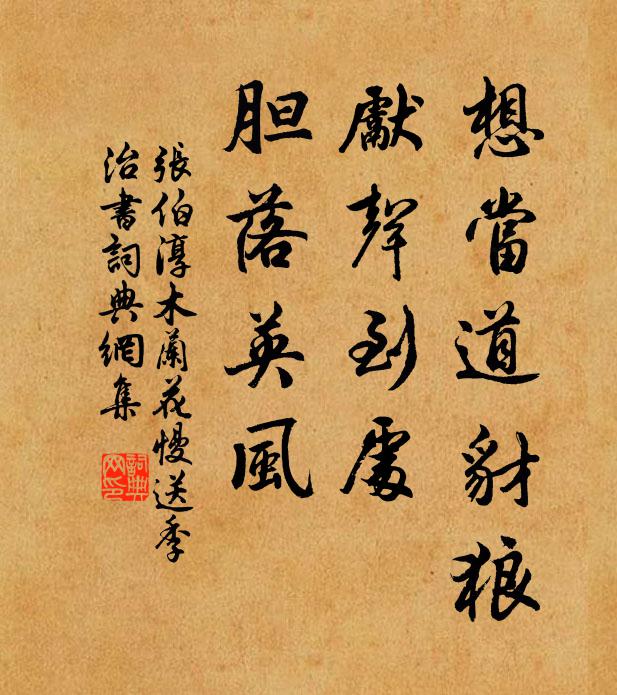 想當道豺狼
獻聲到處
胆落英風
張伯淳木蘭花慢送季
治書詞典網集
詞典
网印